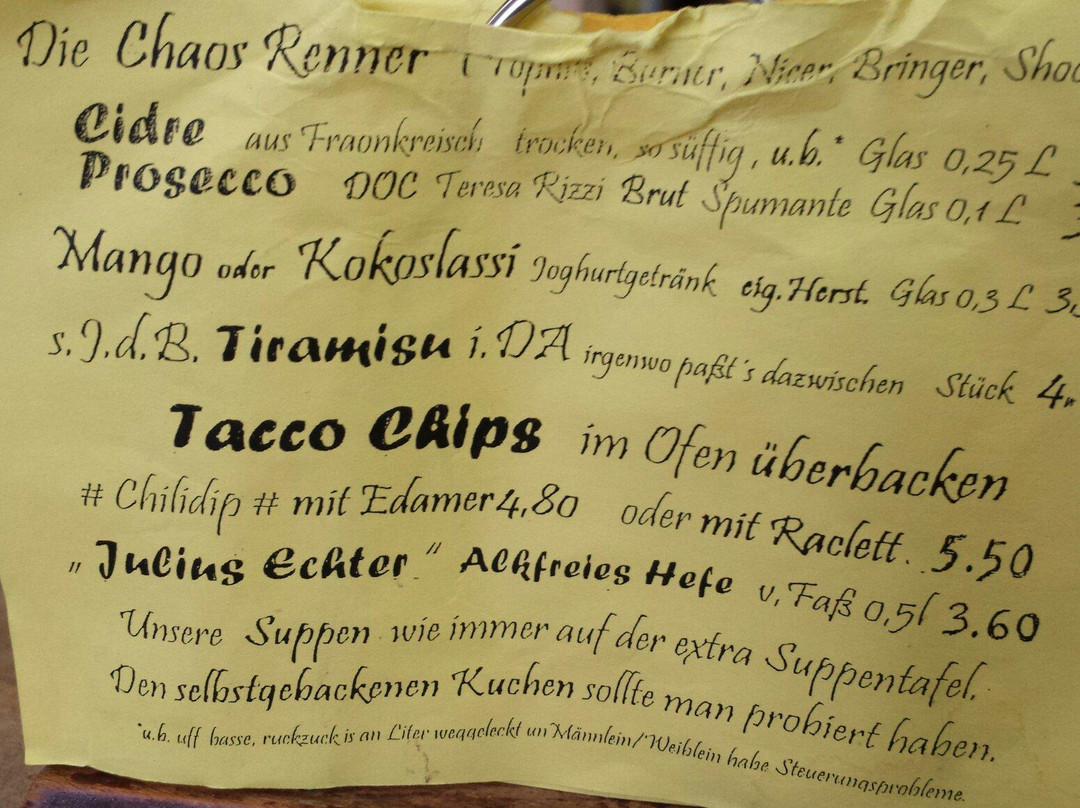 Die Chaos Renner Burner, Nicer, Bringer,
Cidre aus Fraonkreisch trocken, so süffig, u.b.* Glas 0,25 L
Prosecco DOC Teresa Rizzi Brut Spumante Glas 0,1 L
Mango oder Kokoslassi Joghurtgetränk eig. Herst. Glas 0,3 L
s.J.d.B. Tiramisu i.DA irgenwo paßt´s dazwischen Stück
Tacco Chips im Ofen überbacken
# Chilidip # mit Edamer 4,80 oder mit Raclett. 5.50
„Julius Echter“ Alkfreies Hefe v. Faß 0,5l 3.60
Unsere Suppen wie immer auf der extra Suppentafel.
Den selbstgebackenen Kuchen sollte man probiert haben.
*u.b. uff basse, ruckzuck is an Liter weggeleckt un Männlein/Weiblein habe Steuerungsprobleme.